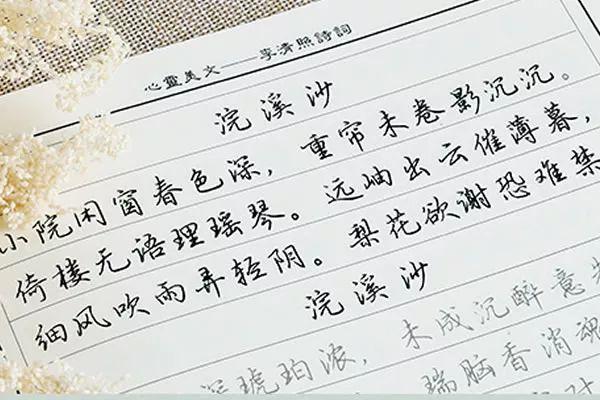 心靈美文——李清照詩詞
浣溪沙
小院闲窗春色深，重帘未卷影沉沉。
倚楼无语理瑶琴。远岫出云催薄暮，
细风吹雨弄轻阴。梨花欲谢恐难禁
浣溪沙
深琥珀浓，未成沉醉意
瑞脑香消魂